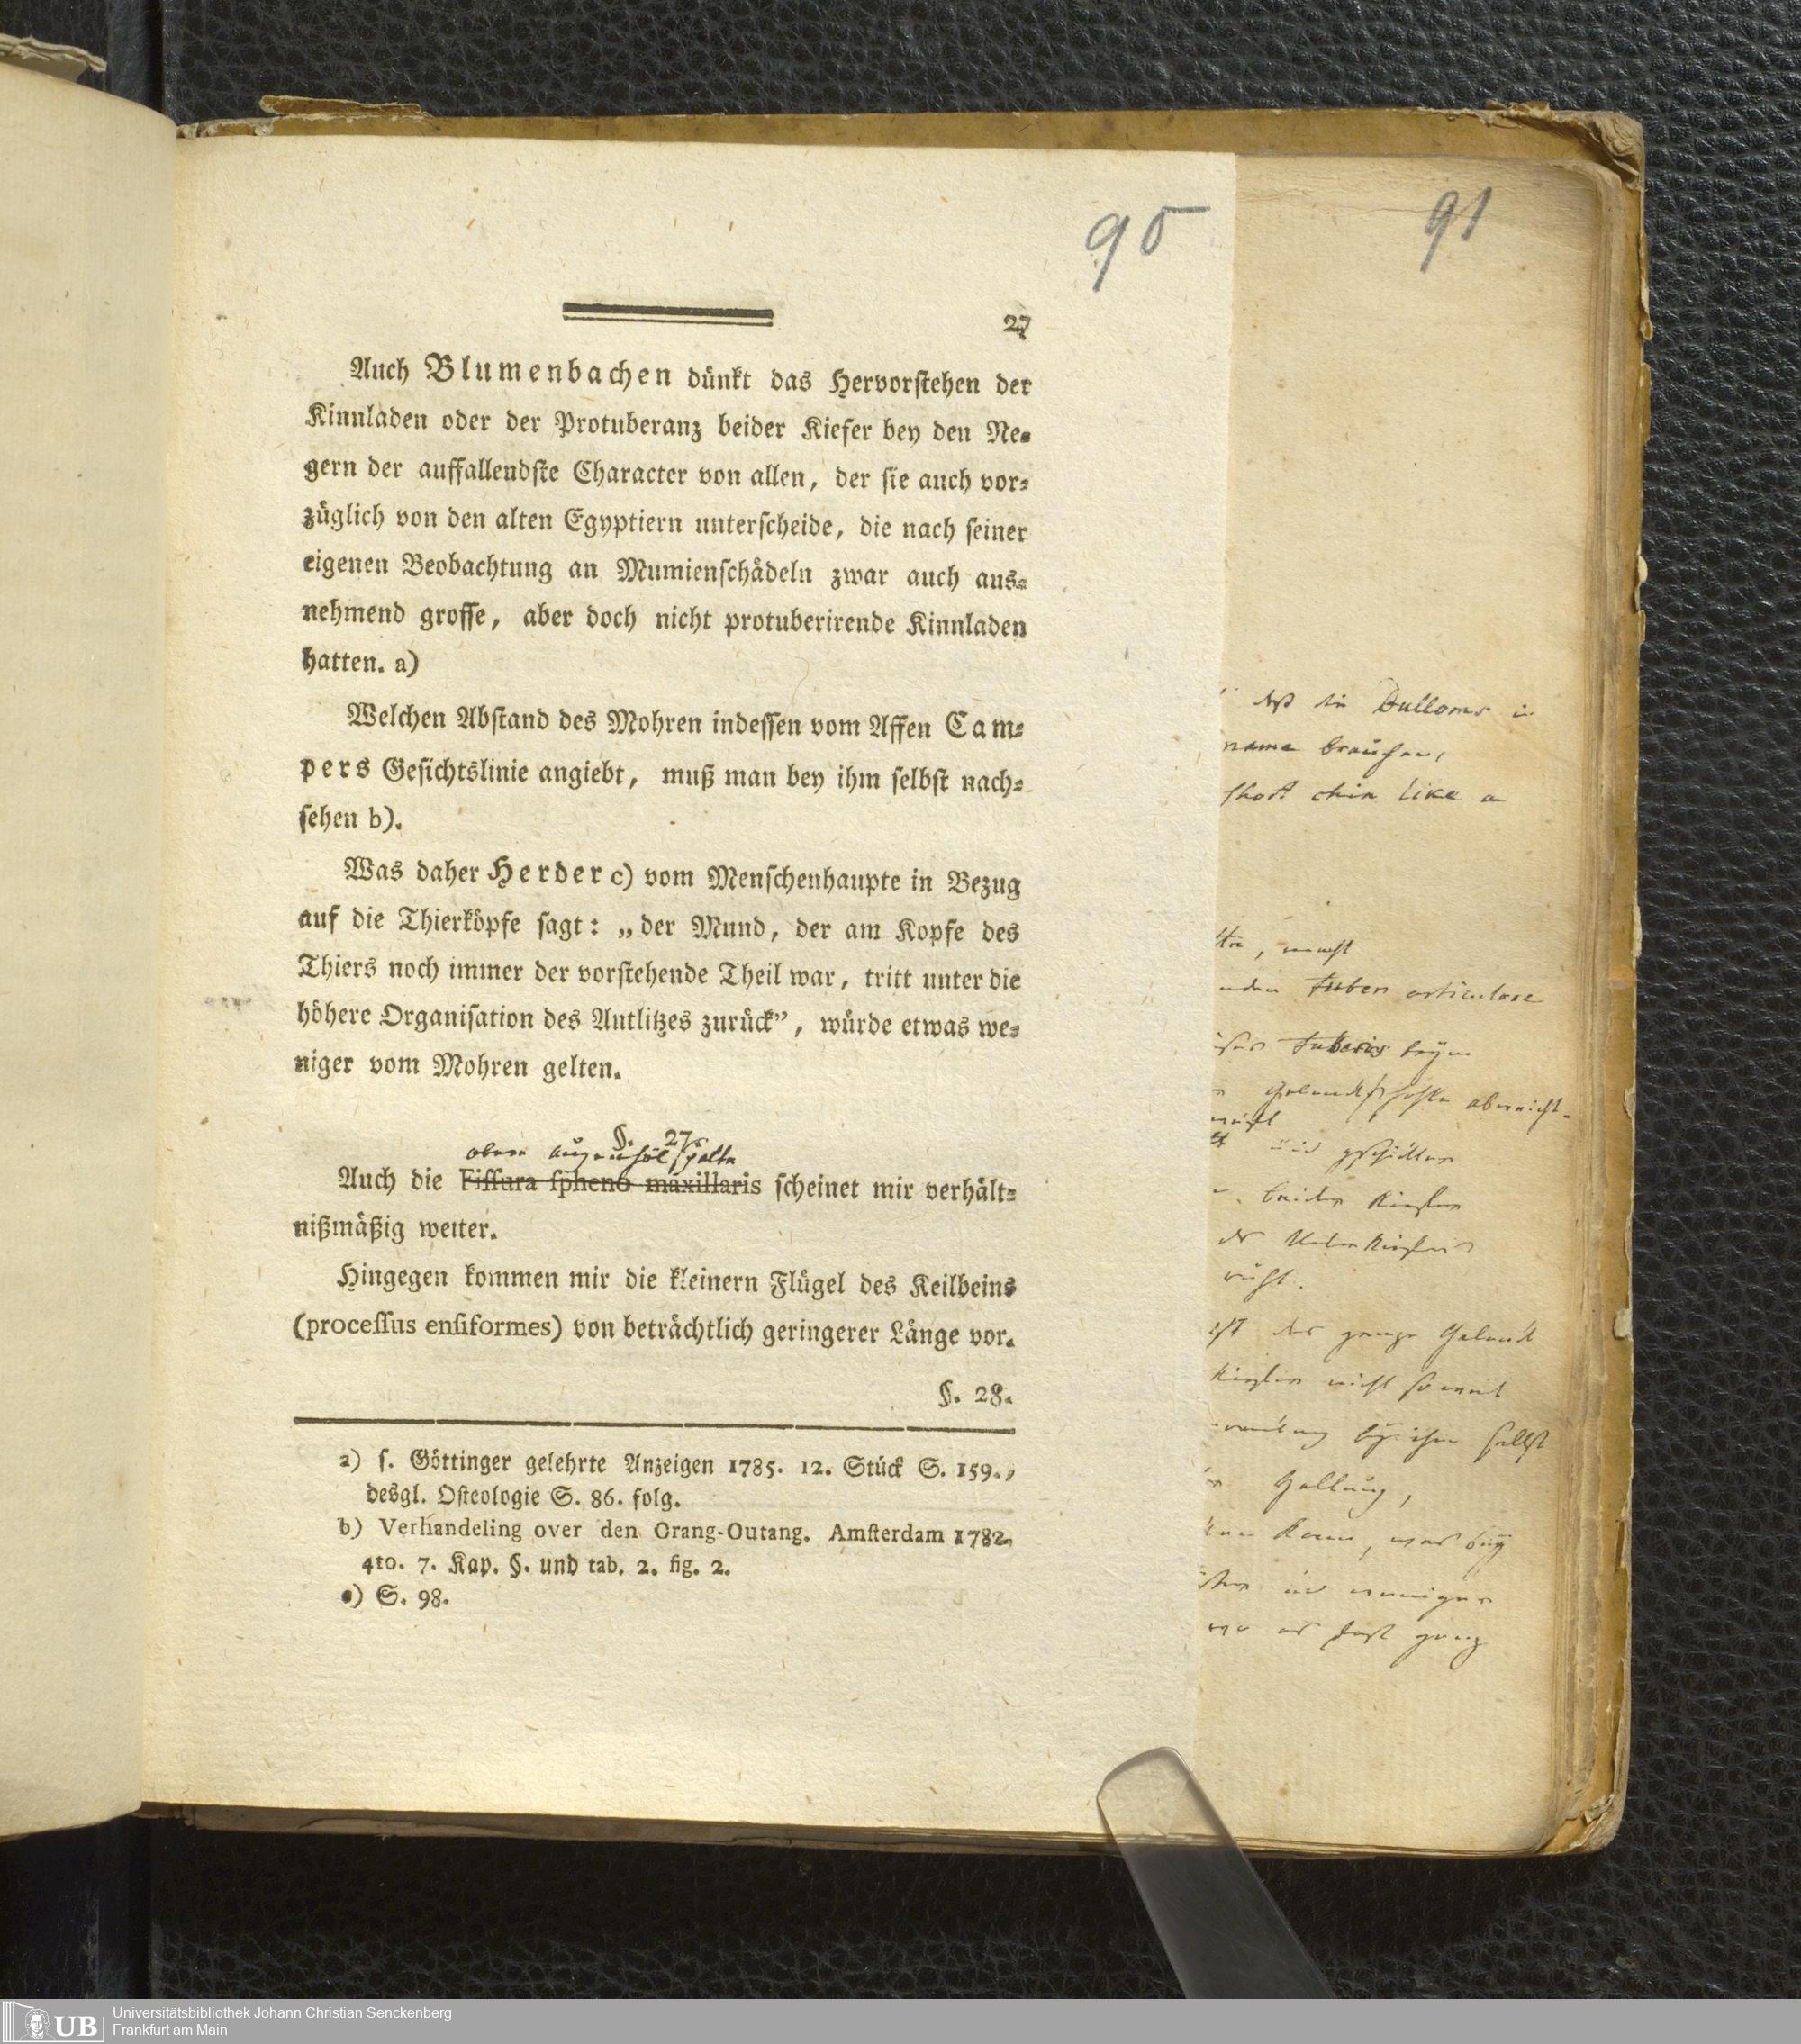 90
91
27
Auch Blumenbachen dünkt das Hervorstehen der
Kinnladen oder der Protuberanz beider Kiefer bey den Ne-
gern der auffallendste Character von allen, der sie auch vor-
züglich von den alten Egyptiern unterscheide, die nach seiner
eigenen Beobachtung an Mumienschädeln zwar auch aus-
nehmend grosse, aber doch nicht protuberirende Kinnladen
hatten. a)
Welchen Abstand des Mohren indessen vom Affen Cam-
pers Gesichtslinie angiebt, muß man bey ihm selbst nach-
sehen b).
Was daher Herder c) vom Menschenhaupte in Bezug
auf die Thierköpfe sagt: „der Mund, der am Kopfe des
Thiers noch immer der vorstehende Theil war, tritt unter die
höhere Organisation des Antlitzes zurück”, würde etwas we-
niger vom Mohren gelten.
§. 27.
obere Augenhölspalte
Auch die Fissura spheno maxillaris scheinet mir verhält-
nißmäßig weiter.
Hingegen kommen mir die kleinern Flügel des Keilbeins
(processus ensiformes) von beträchtlich geringerer Länge vor.
§. 28.
a) s. Göttinger gelehrte Anzeigen 1785. 12. Stück S. 159.,
desgl. Osteologie S. 86. folg.
b) Verhandeling over den Orang-Outang. Amsterdam 1782.
4to. 7. Kap. §. und tab. 2. fig. 2.
c) S. 98.
daß die Bulloms
name brauchen,
short chin like a
, macht
Tuber articulare
Tuberis beym
beider Kiefer
der Unterkiefer
ist das ganze Gelenk
Kiefer nicht so weit
selbst
Haltung,
kann, was bey
und weniger
wo es fast ganz
UB
Universitätsbibliothek Johann Christian Senckenberg
Frankfurt am Main